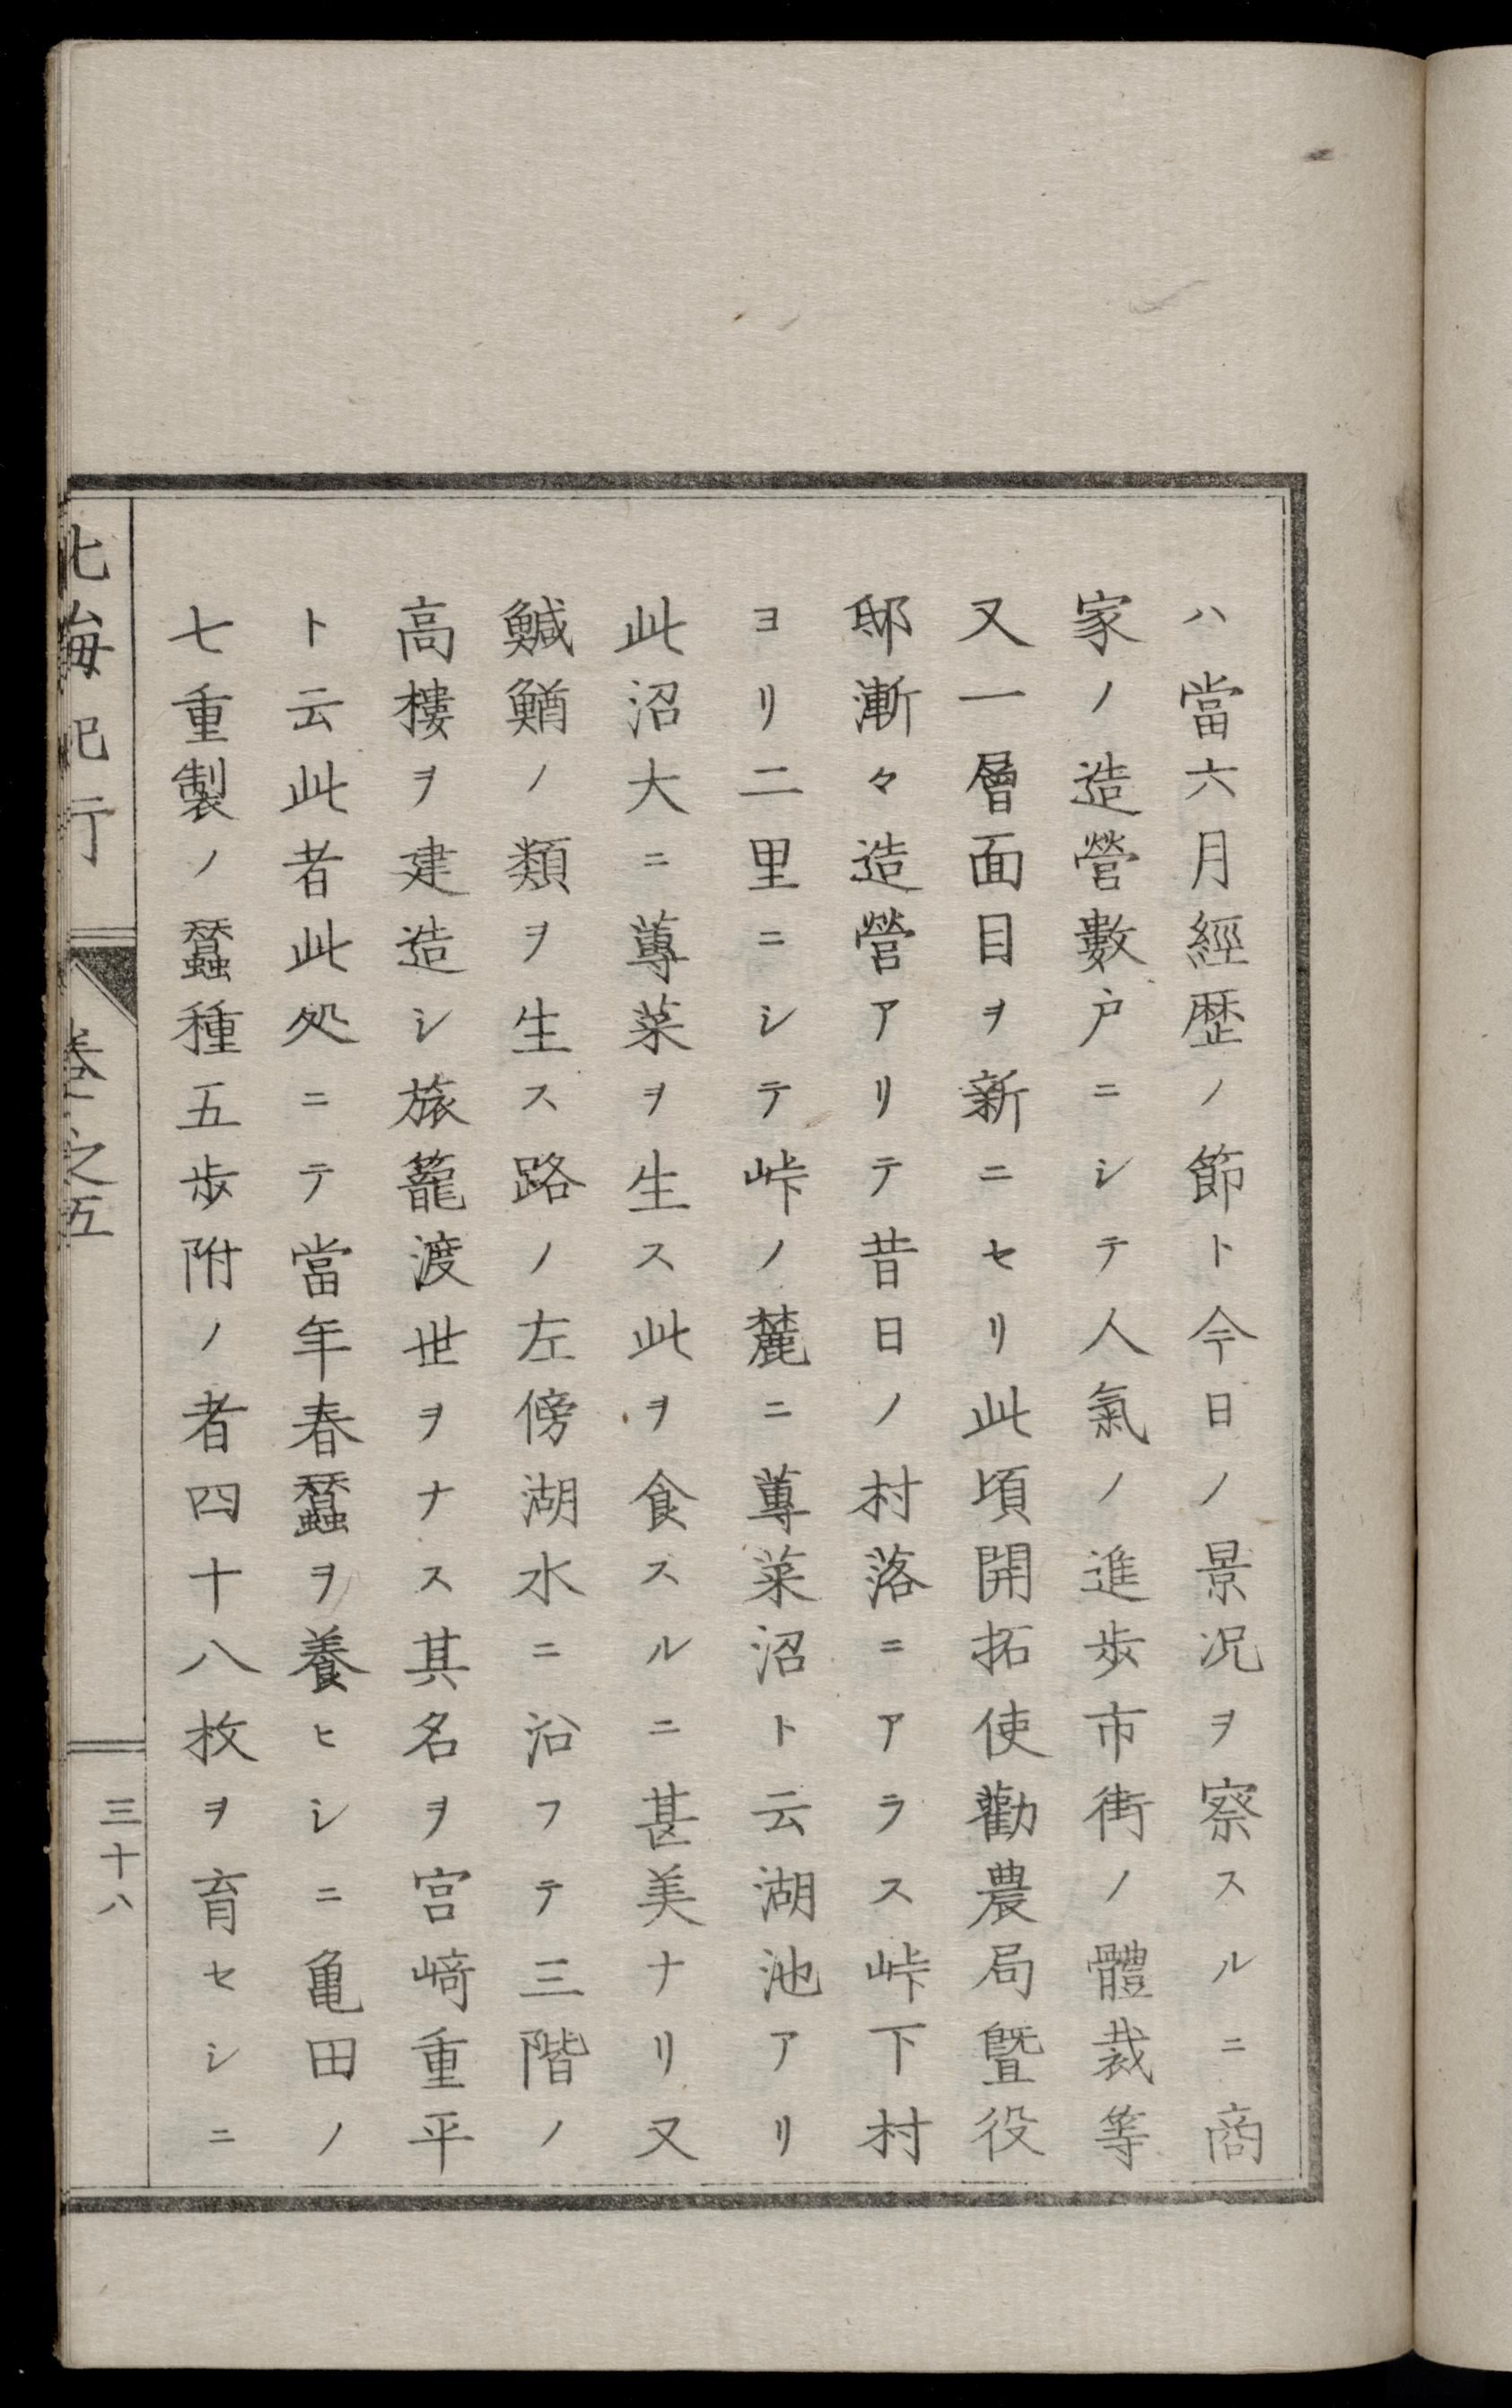 ハ當六月經歴ノ節ト今日ノ景況ヲ察スルニ商
家ノ造營數戸ニシテ人氣ノ進歩市街ノ體裁等
又一層面目ヲ新ニセリ此頃開拓使勸農局曁役
邸漸々造營アリテ昔日ノ村落ニアラス峠下村
ヨリ二里ニシテ峠ノ麓ニ蓴菜沼ト云湖池アリ
此沼大ニ蓴菜ヲ生ス此ヲ食スルニ甚美ナリ又
鰔鰌ノ類ヲ生ス路ノ左傍湖水ニ沿フテ三階ノ
高樓ヲ建造シ旅籠渡世ヲナス其名ヲ宮﨑重平
ト云此者此処ニテ當年春蠶ヲ養ヒシニ亀田ノ
七重製ノ蠶種五歩附ノ者四十八枚ヲ育セシニ
北海紀行
卷之五
三十八